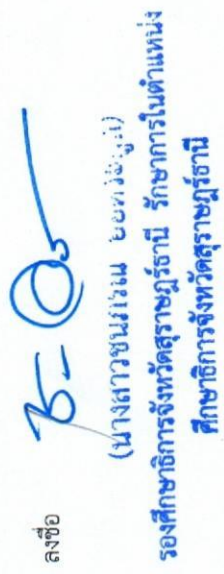 ลงชื่อ
(นางสาวชนภรณ
รองศึกษาธิการจังหวัดสุราษฎร์ธานี รักษาการในตำแหน่ง
ศึกษาธิการจังหวัดสุราษฎร์ธานี